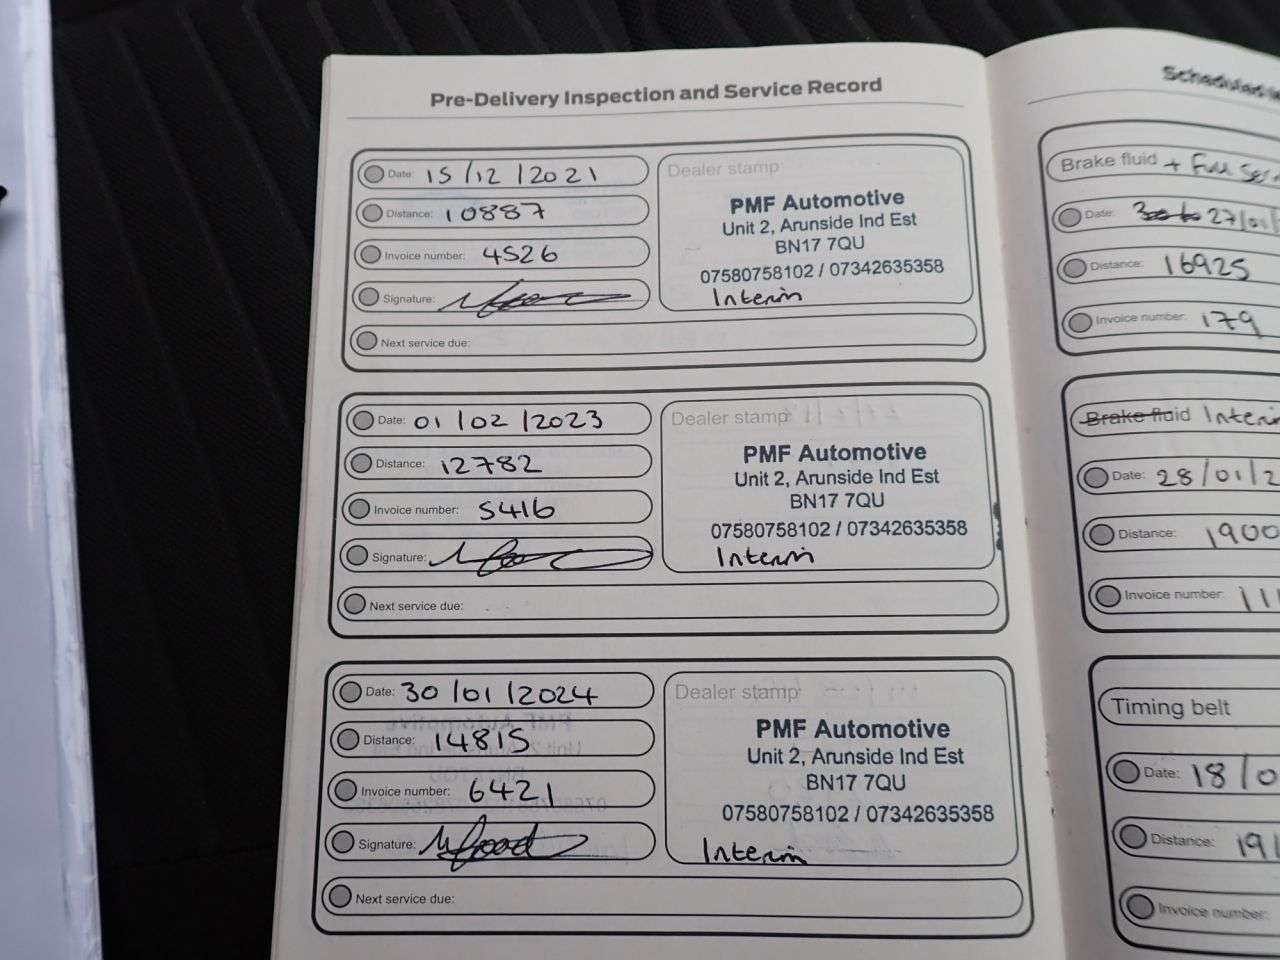 Pre-Delivery Inspection and Service Record
Date: 15/12/2021
Distance: 10887
Invoice number: 4526
Signature:
Next service due:
Dealer stamp
PMF Automotive
Unit 2, Arunside Ind Est
BN17 7QU
07580758102 / 07342635358
Interim
Date: 01/02/2023
Distance: 12782
Invoice number: 5416
Signature:
Next service due:
Dealer stamp
PMF Automotive
Unit 2, Arunside Ind Est
BN17 7QU
07580758102 / 07342635358
Interim
Date: 30/01/2024
Distance: 14815
Invoice number: 6421
Signature:
Next service due:
Dealer stamp
PMF Automotive
Unit 2, Arunside Ind Est
BN17 7QU
07580758102 / 07342635358
Interim
Scheduled
Brake fluid + Full
Date: 27/01/
Distance: 16925
Invoice number: 179
Brake fluid Interi
Date: 28/01/2
Distance: 1900
Invoice number: 111
Timing belt
Date: 18/0
Distance: 191
Invoice number: